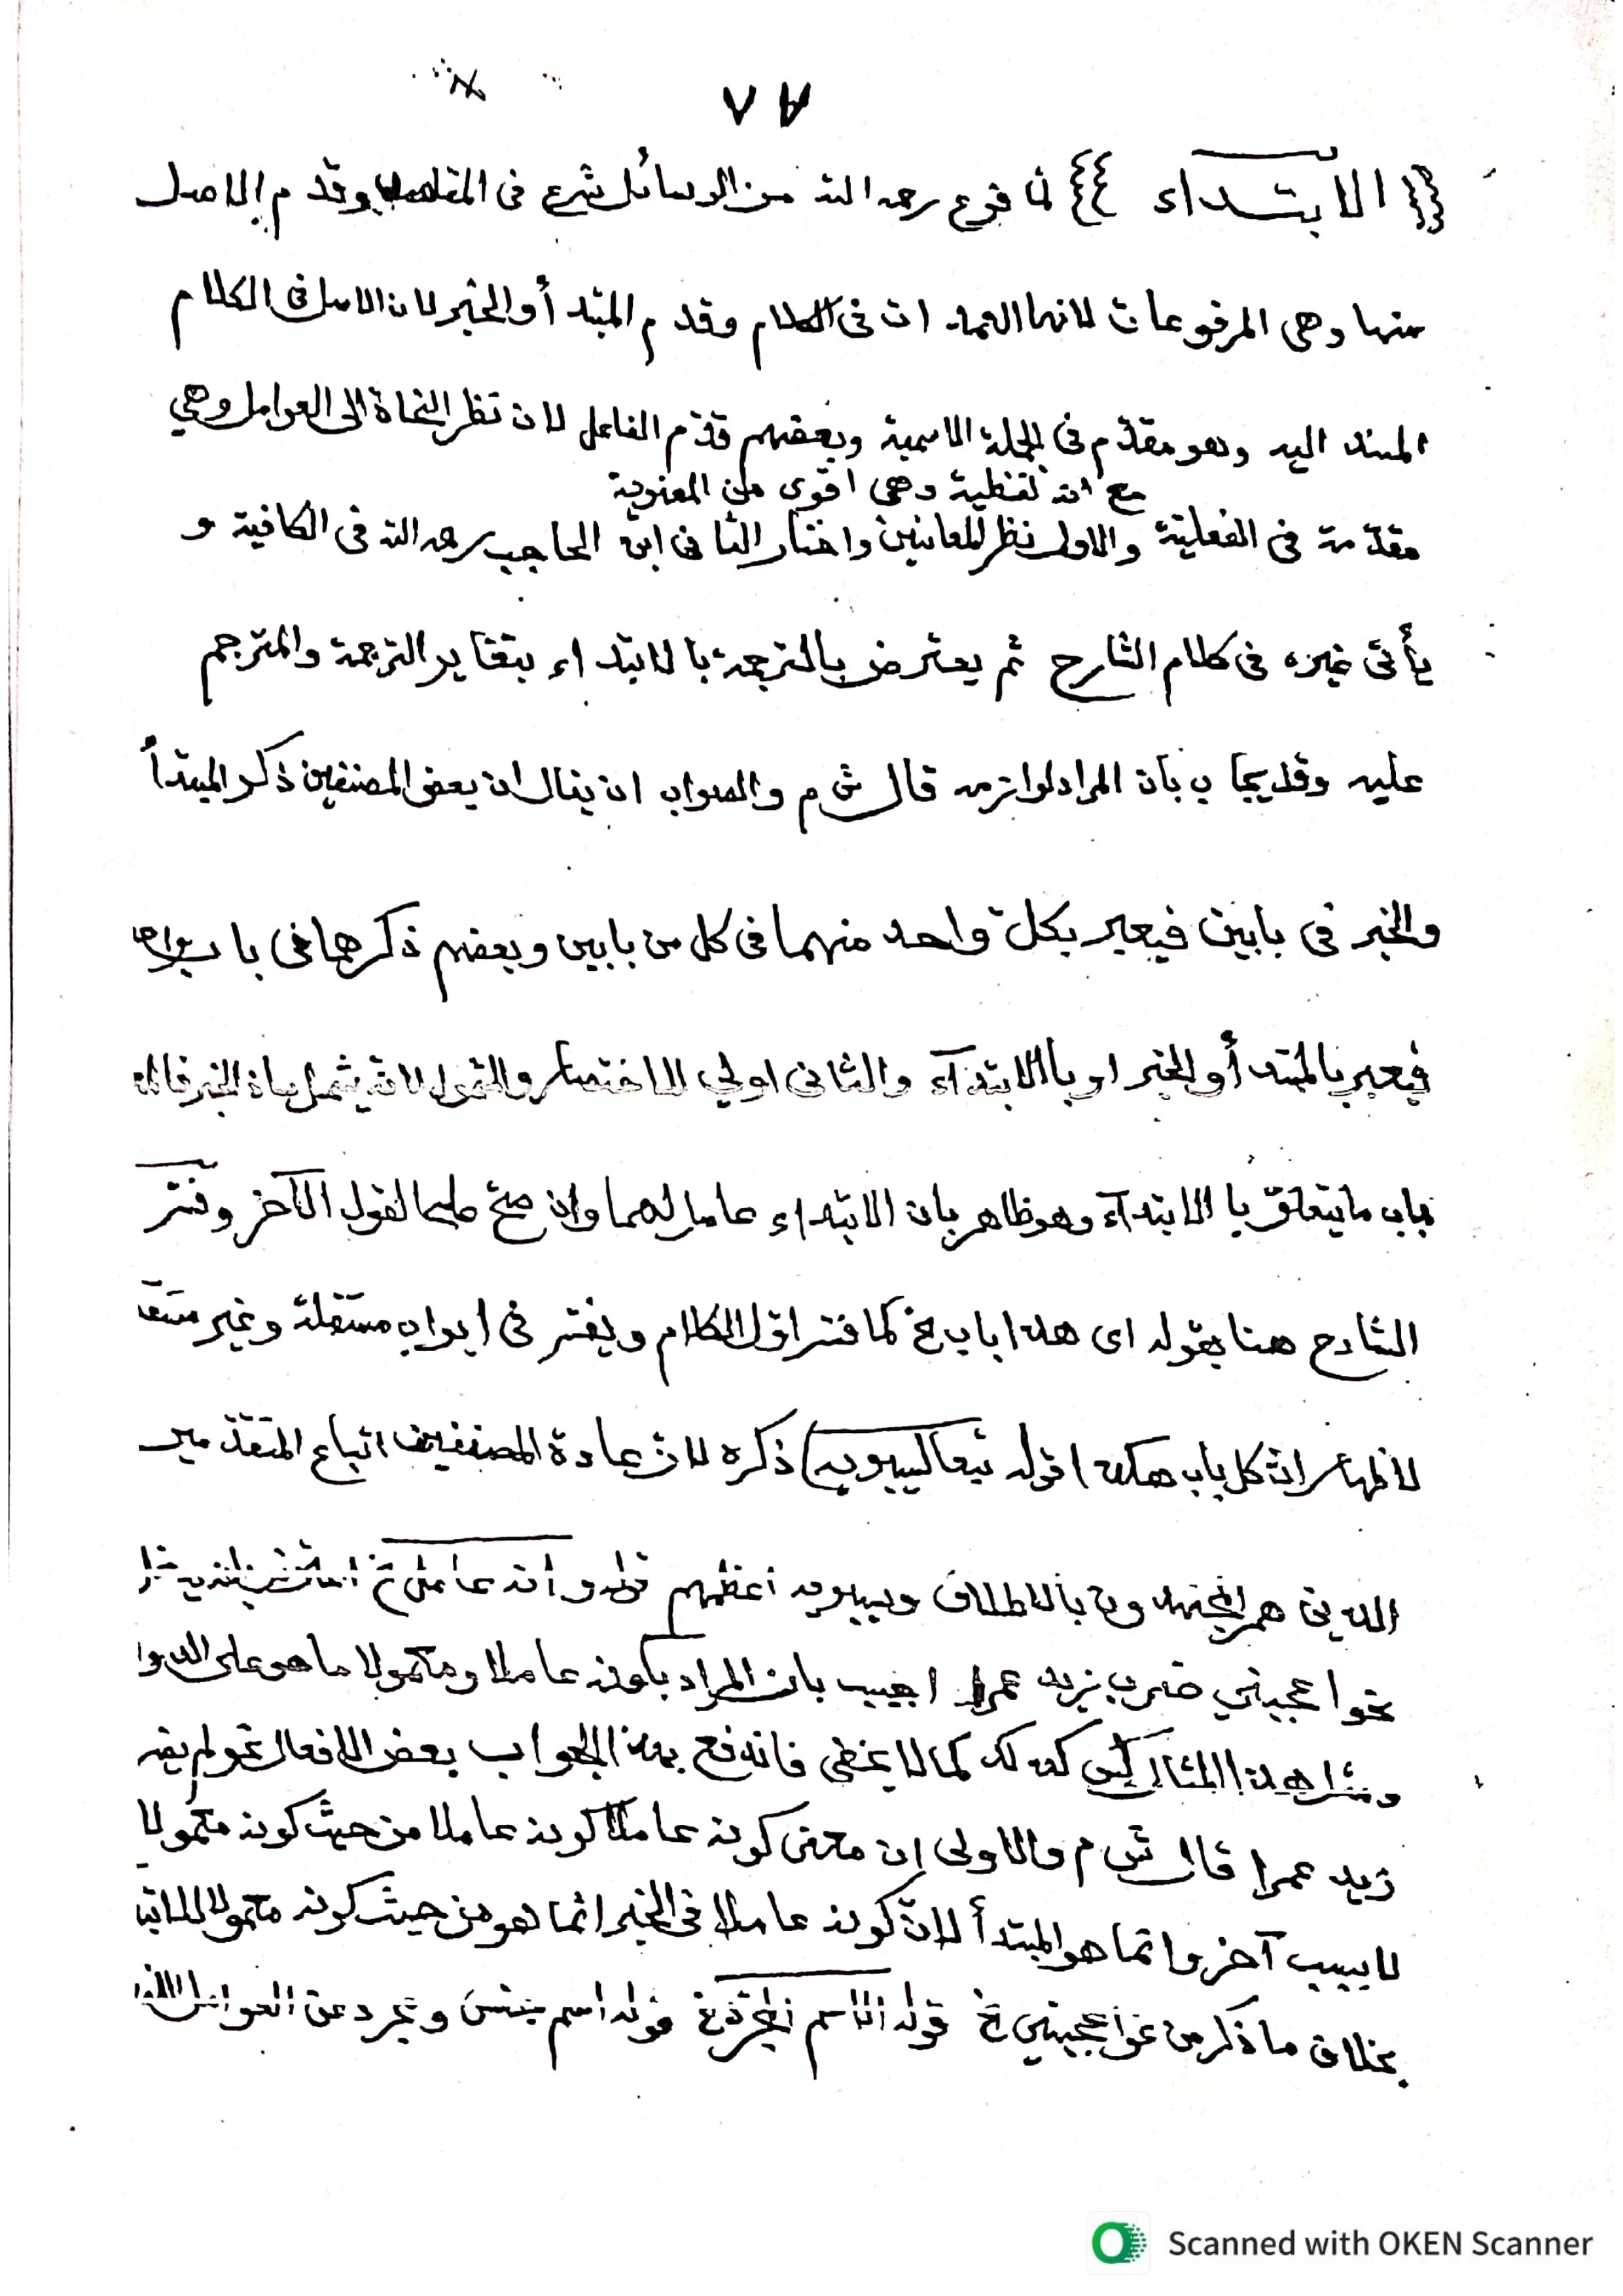 ٧٨
{{ الابتداء }} لما فرغ رحمه الله من الوسائل شرع فى المقاصد وقدم الاصل
منها وهى المرفوعات لانها العمدات فى الكلام وقدم المبتدأ والخبر لان الاصل فى الكلام
المسند اليه وهو مقدّم فى الجملة الاسمية وبعضهم قدّم الفاعل لان نظر النحاة الى العوامل وهي
مع انه لفظية وهى اقوى من المعنوية
مقدّمة فى الفعلية والاول نظر للمعانيين واختار الثانى ابن الحاجب رحمه الله فى الكافية و
يأتى غيره فى كلام الشارح ثم يعترض بالترجمة بالابتداء بتغاير الترجمة والمترجم
عليه وقد يجاب بأن المراد لوازمه قال ش م والصواب ان يقال ان بعض المصنفين ذكر المبتدأ
والخبر فى بابين فيعبر بكل واحد منهما فى كل من بابين وبعضهم ذكرهما فى باب واحد
فيعبر بالمبتدأ والخبر او بالابتدآء والثانى اولي للاختصار والشمول لانه يشمل
باب ما يتعلق بالابتدآء وهو ظاهر بان الابتداء عامل لهما وان صحّ القول الآخر وفسّر
الشارح هنا بقوله اى هذا باب الخ كما فسّر اوّل الكلام ويفسّر فى ابواب مستقلة وغير
لاظهار انّ كل باب هكذا (قوله تبعا لسيبويه) ذكره لانّ عادة المصنفين اتباع المتقدّمين
الذين هم المجتهدون بالاطلاق وسيبويه اعظمهم قوله وانه عامل الخ
نحو اعجبني ضرب زيد عمرا اجيب بان المراد بكونه عاملا ومعمولا ما هو على الدوا
ومثل هذا المثال ليس كذلك كما لا يخفى فاندفع بهذا الجواب بعض الافعال نحو لم يضر
زيد عمرا قال ش م والاولى ان معنى كونه عاملا كونه عاملا من حيث كونه معمولا
لا بسبب آخر وانما هو المبتدأ لانّ كونه عاملا فى الخبر انما هو من حيث كونه معمولا للابتدا
بخلاف ما ذكر من نحو اعجبني الخ قوله الاسم قوله اسم جنس وتجرد عن العوامل
Scanned with OKEN Scanner